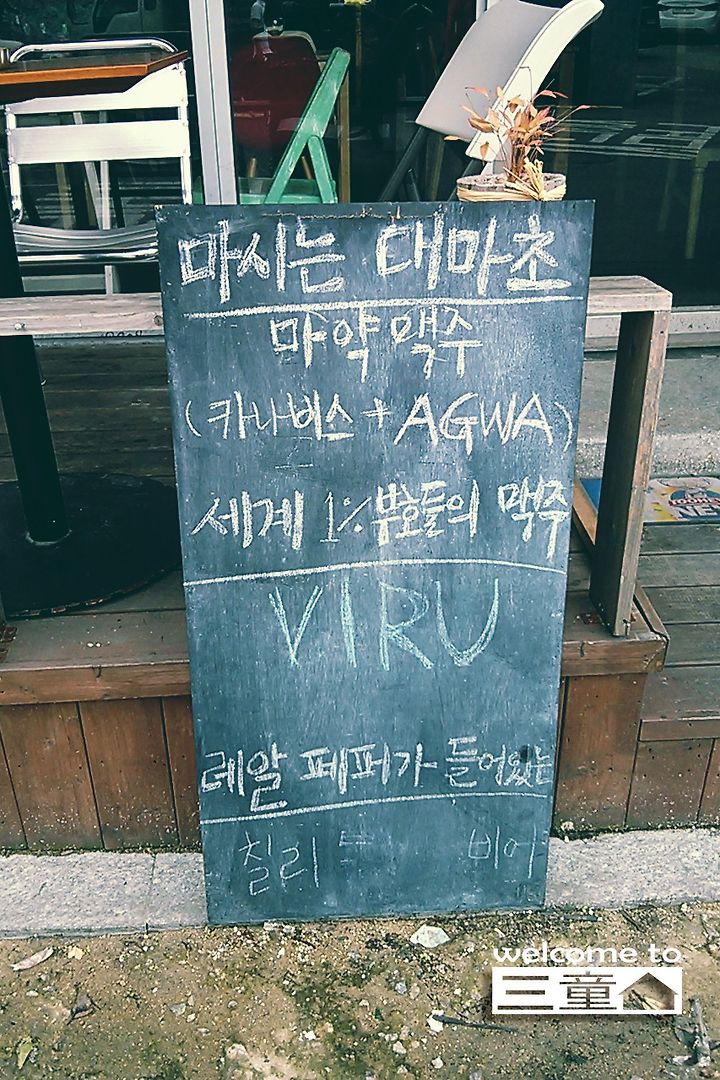 마시는 대마초
마약맥주
(카나비스 + AGWA)
세계 1% 부호들의 맥주
VIRU
레알 페퍼가 들어있는
칠리 비어
welcome to
三童